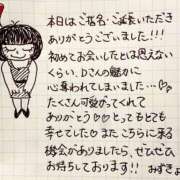 本日はご指名・ご延長いただき
ありがとうございました!!!
初めてお会いしたとは思えない
くらい、Dさんの魅力に
心奪われてしまいました…♡
たくさん可愛がってくれて
ありがとう♡とってもとても
幸せでした♡またこちらに来る
機会がありましたら、ぜひぜひ
お待ちしております!!
みずき